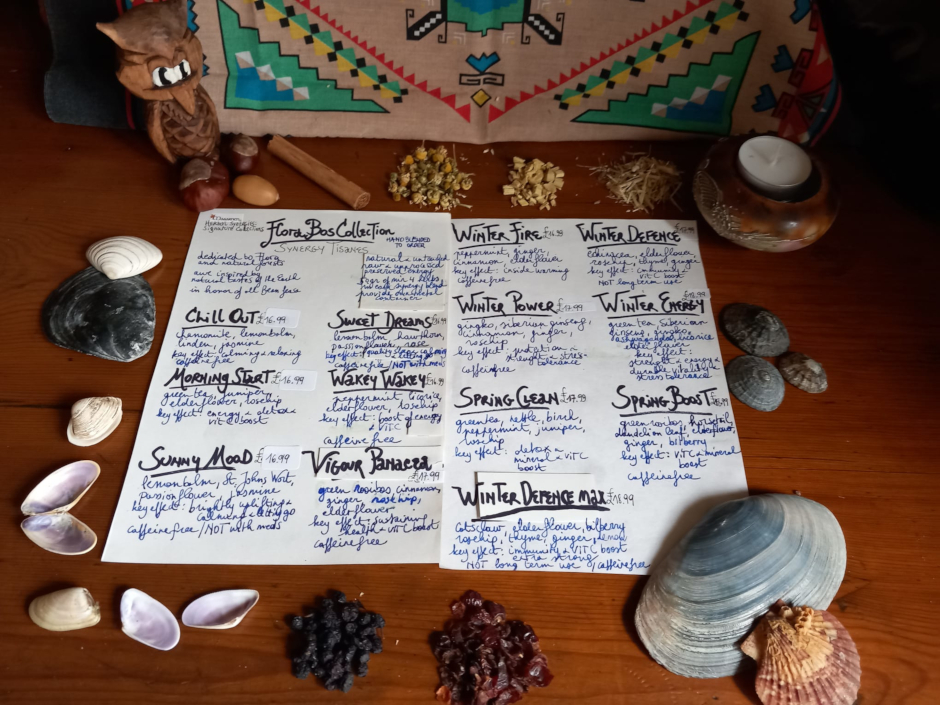 Signature Collections
Flora Bos Collection
Synergy Tisanes
HAND BLENDED
TO ORDER
dedicated to Flora
and natural forests
awe inspired by
natural tastes of the Earth
in honor of all
natural &
raw &
preserved energy
provide
container
Chill Out £16.99
camomile, lemonbalm,
linden, jasmine
key effect: calming & relaxing
caffeine free
Sweet Dreams £16.99
lemonbalm, hawthorn,
passionflower, rose
key effect: quality
caffeine free / NOT with meds
Morning Start £16.99
green tea, juniper,
elderflower, rosehip
key effect: energy & detox &
vit C boost
Wakey Wakey
peppermint, licorice,
elderflower, rosehip
key effect: boost of energy
& vit C
caffeine free
Sunny Mood £16.99
lemonbalm, St. Johns Wort,
passionflower, jasmine
key effect: brightly uplifting &
calming &
caffeine free / NOT with meds
Vigour Panacea £17.99
green rooibos, cinnamon,
ginger, rosehip,
elderflower
key effect: sustaining
health & vit C boost
caffeine free
Winter Fire £16.99
peppermint, ginger,
cinnamon, elderflower
key effect: inside warming
caffeine free
Winter Defence
echinacea, elderflower,
rosehip, thyme, ginger
key effect: immunity &
vit C boost
NOT long term use
Winter Power £17.99
gingko, siberian ginseng,
cinnamon, ginger,
rosehip
key effect: hydration &
strength & stress
tolerance
caffeine free
Winter Energy
green tea, siberian
ginseng, gingko,
ashwagandha, licorice
elderflower
key effect:
strength & energy &
durable vitality &
stress tolerance
Spring Clean £17.99
green tea, nettle, birch,
peppermint, juniper,
rosehip
key effect: detox &
mineral & vit C
boost
Spring Boost
green rooibos, horsetail,
dandelion leaf, elderflower,
ginger, bilberry
key effect: vit C & mineral
boost
caffeine free
Winter Defence Max
catsclaw, elderflower, bilberry
rosehip, thyme, ginger, lemon
key effect: immunity & vit C boost
extra strong
NOT long term use / caffeine free